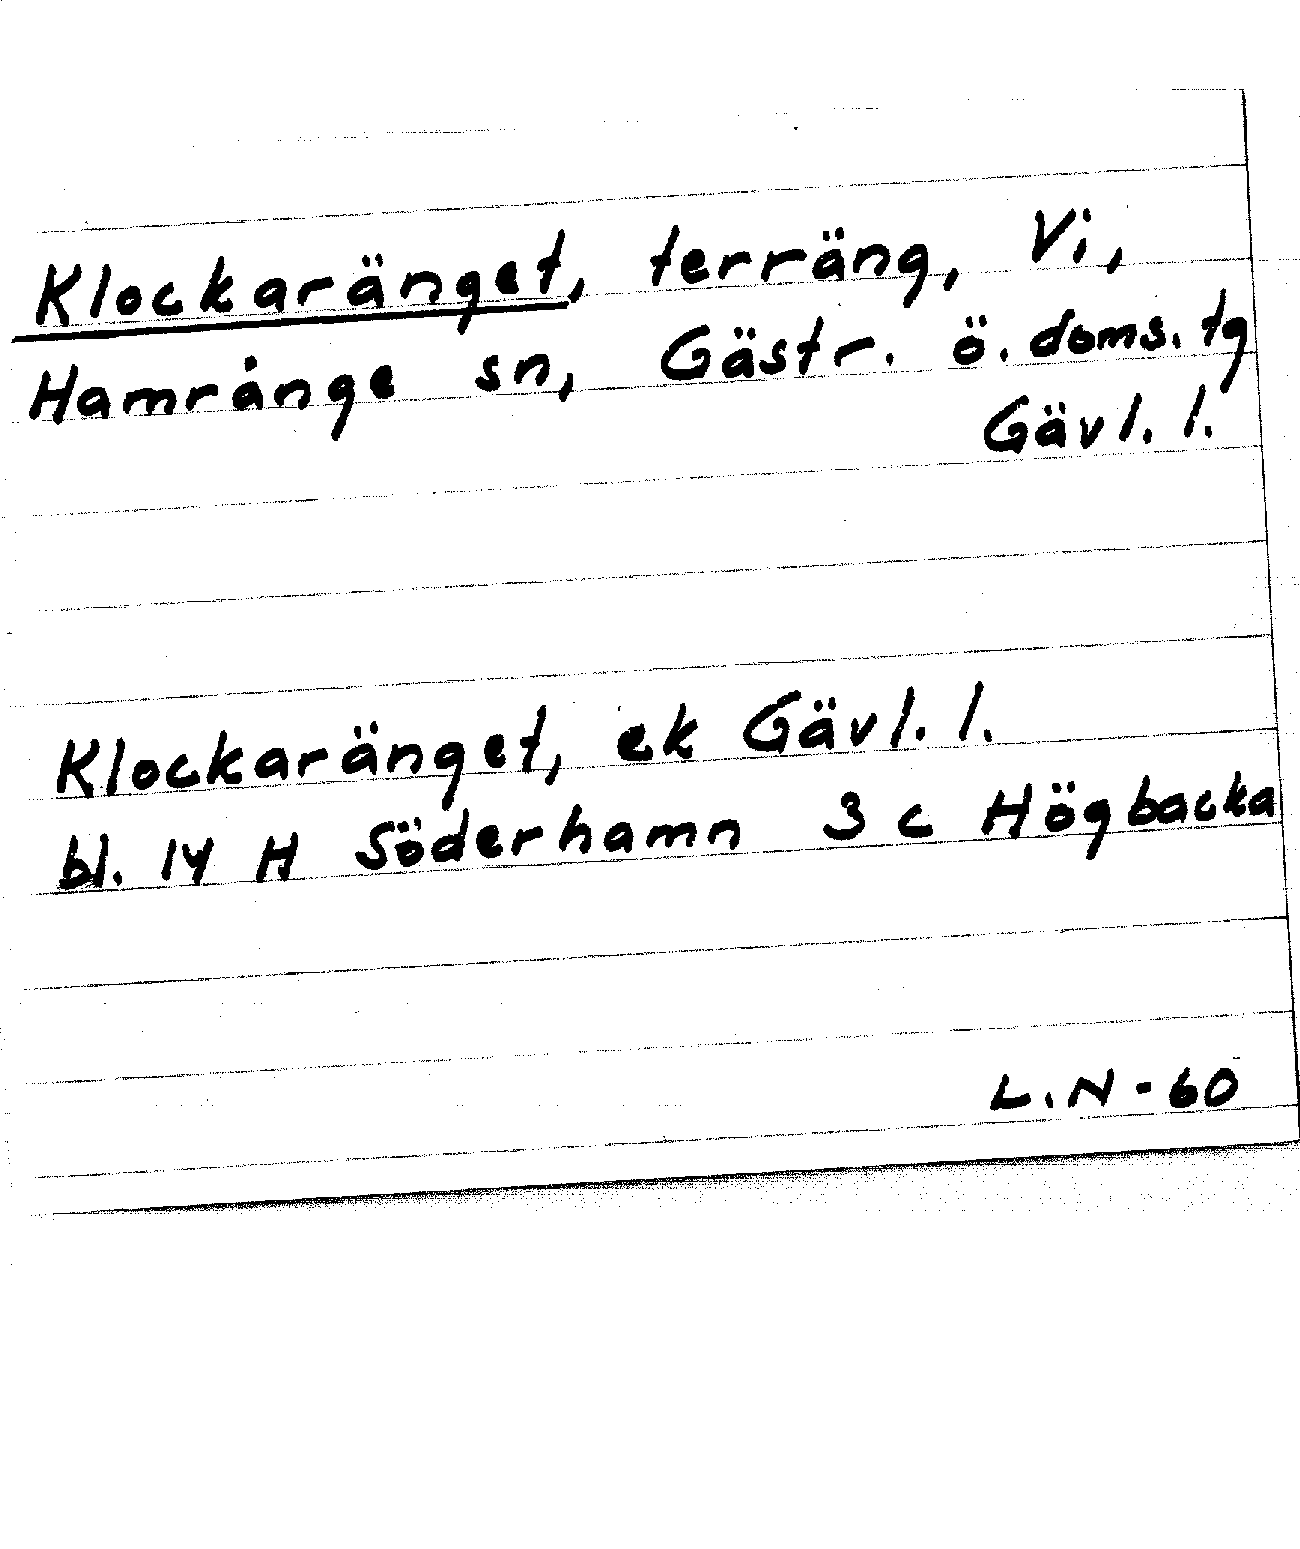 Klockaränget, terräng, Vi,
Hamrånge sn, Gästr. ö. doms. tg
Gävl. l.
Klockaränget, ek Gävl. l.
bl. 14 H Söderhamn 3 c Högbacka
L.N - 60